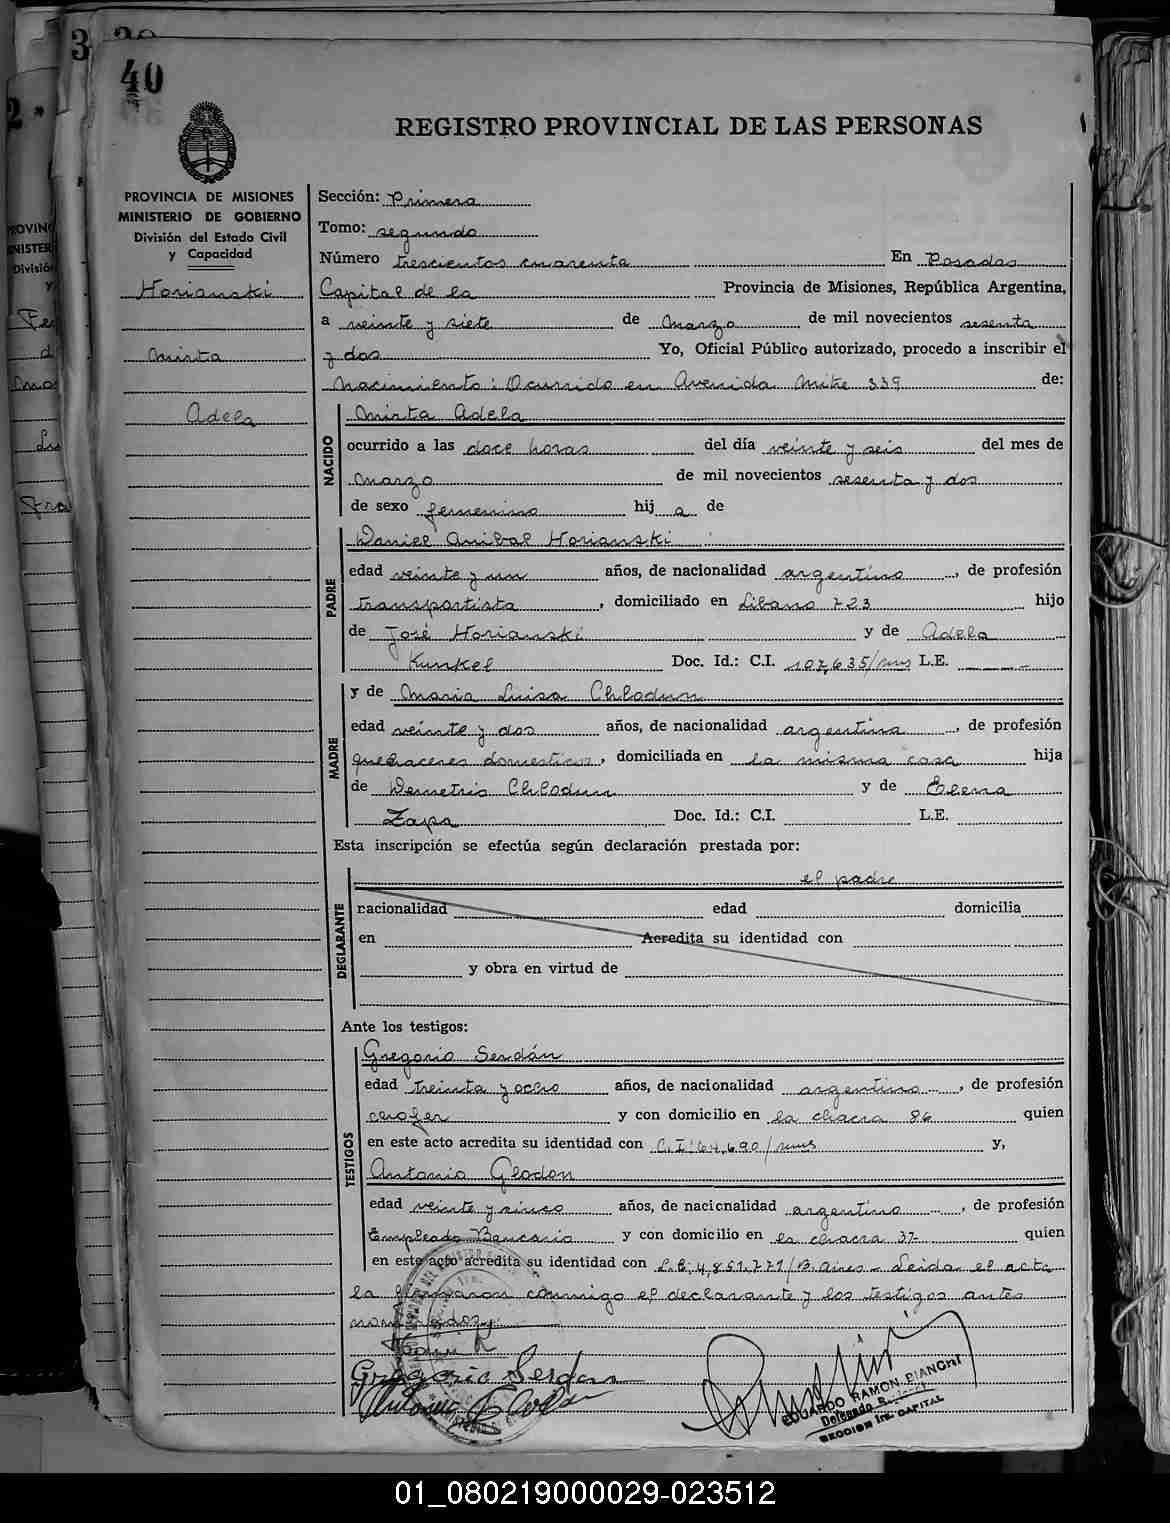 40
REGISTRO PROVINCIAL DE LAS PERSONAS
PROVINCIA DE MISIONES
MINISTERIO DE GOBIERNO
División del Estado Civil
y Capacidad
Horianski
Mirta
Adela
Sección: Primera
Tomo: segundo
Número trescientos cuarenta En Posadas
Capital de la Provincia de Misiones, República Argentina,
a veinte y siete de Marzo de mil novecientos sesenta
y dos Yo, Oficial Público autorizado, procedo a inscribir el
Nacimiento: Ocurrido en Avenida Mitre 339 de:
NACIDO
Mirta Adela
ocurrido a las doce horas del día veinte y seis del mes de
Marzo de mil novecientos sesenta y dos
de sexo femenino hij a de
PADRE
Daniel Anibal Horianski
edad veinte y un años, de nacionalidad argentino, de profesión
transportista, domiciliado en Libano 723 hijo
de José Horianski y de Adela
Kunkel Doc. Id.: C.I. 107,635/mns L.E. ----
MADRE
y de Maria Luisa Chlodun
edad veinte y dos años, de nacionalidad argentina, de profesión
quehaceres domesticos, domiciliada en la misma casa hija
de Demetrio Chlodun y de Elena
Zapa Doc. Id.: C.I. L.E.
Esta inscripción se efectúa según declaración prestada por:
DECLARANTE
el padre
nacionalidad edad domicilia
en Acredita su identidad con
y obra en virtud de
Ante los testigos:
TESTIGOS
Gregorio Serdán
edad treinta y ocho años, de nacionalidad argentino, de profesión
chofer y con domicilio en la chacra 86 quien
en este acto acredita su identidad con C.I. 64,690/mns y,
Antonio Glodon
edad veinte y cinco años, de nacionalidad argentino, de profesión
Empleado Bancario y con domicilio en la chacra 37- quien
en este acto acredita su identidad con L.E. 4,851.771/B. Aires - Leida el acta
la firmaron conmigo el declarante y los testigos antes
nombrados
Gregorio Serdan
Antonio
EDUARDO RAMON BIANCHI
Delegado
SECCION 1ra. CAPITAL
01_080219000029-023512